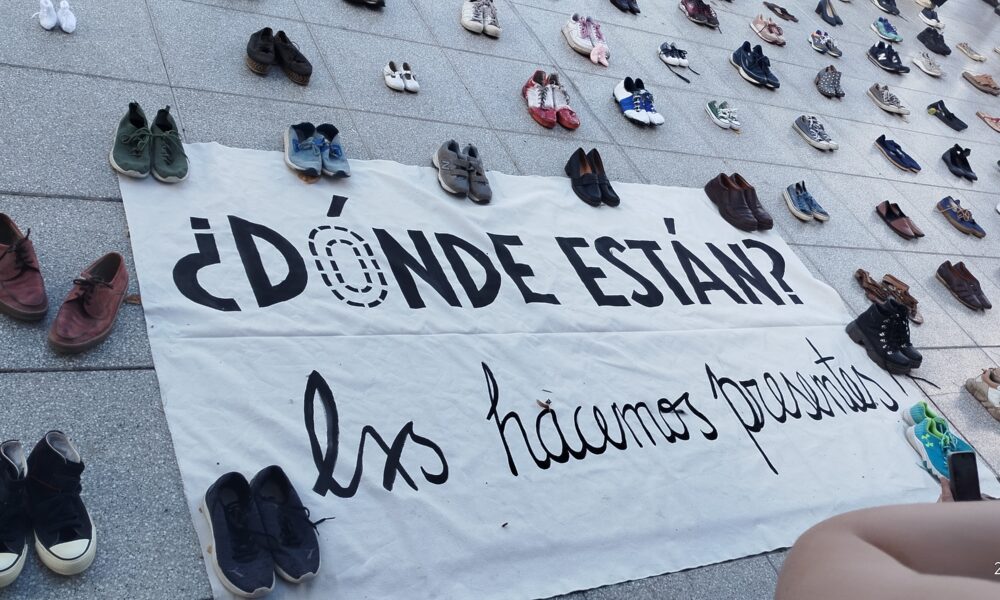 ¿DÓNDE ESTÁN?
lxs hacemos presentes,